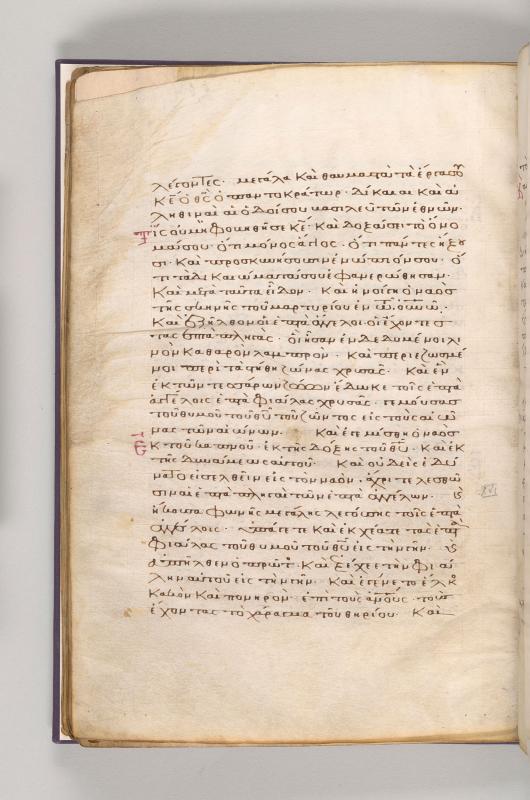 λέγοντες· μεγάλα καὶ θαυμαστὰ τὰ ἔργα σου
κε ὁ θς ὁ παντοκράτωρ· δίκαιαι καὶ ἀ
ληθιναὶ αἱ ὁδοί σου βασιλεῦ τῶν ἐθνῶν·
τίς οὐ μὴ φοβηθῆ σε κε· καὶ δοξάσει τὸ ὄνο
μά σου· ὅτι μόνος ἅγιος· ὅτι πάντες ἥξου
σι· καὶ προσκυνήσουσιν ἐνώπιόν σου· ὅ
τι τὰ δικαιώματά σου ἐφανερώθησαν·
Καὶ μετὰ ταῦτα εἶδον· καὶ ἠνοίγη ὁ ναὸς
τῆς σκηνῆς τοῦ μαρτυρίου ἐν
καὶ ἐξῆλθον οἱ ἑπτὰ ἄγγελοι οἱ ἔχοντες
τὰς ἑπτὰ πληγάς· οἳ ἦσαν ἐνδεδυμένοι λι
νὸν καθαρὸν λαμπρὸν· καὶ περιεζωσμέ
νοι περὶ τὰ στήθη ζώνας χρυσᾶς· καὶ ἓν
ἐκ τῶν τεσσάρων ζώων ἔδωκε τοῖς ἑπτὰ
ἀγγέλοις ἑπτὰ φιάλας χρυσᾶς· γεμούσας
τοῦ θυμοῦ τοῦ θυ τοῦ ζῶντος εἰς τοὺς αἰῶ
νας τῶν αἰώνων· Καὶ ἐγεμίσθη ὁ ναὸς
ἐκ τοῦ καπνοῦ· ἐκ τῆς δόξης τοῦ θυ· καὶ ἐκ
τῆς δυνάμεως αὐτοῦ· καὶ οὐδεὶς ἐδύ
νατο εἰσελθεῖν εἰς τὸν ναὸν· ἄχρι τελεσθῶ
σιν αἱ ἑπτὰ πληγαὶ τῶν ἑπτὰ ἀγγέλων· καὶ
ἤκουσα φωνῆς μεγάλης λεγούσης τοῖς ἑπτὰ
ἀγγέλοις· ὑπάγετε καὶ ἐκχέατε τὰς ἑπτὰ
φιάλας τοῦ θυμοῦ τοῦ θυ εἰς τὴν γῆν· καὶ
ἀπῆλθεν ὁ πρῶτος· καὶ ἐξέχεε τὴν φιά
λην αὐτοῦ εἰς τὴν γῆν· καὶ ἐγένετο ἕλκος
κακὸν καὶ πονηρὸν· ἐπὶ τοὺς ανους· τοὺς
ἔχοντας τὸ χάραγμα τοῦ θηρίου· καὶ